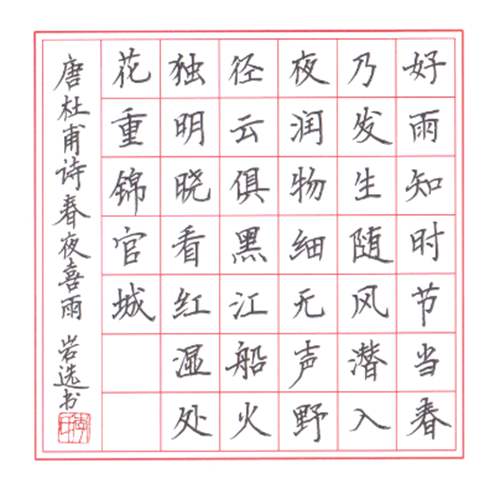 好雨知时节当春
乃发生随风潜入
夜润物细无声野
径云俱黑江船火
独明晓看红湿处
花重锦官城
唐杜甫诗春夜喜雨 岩选书